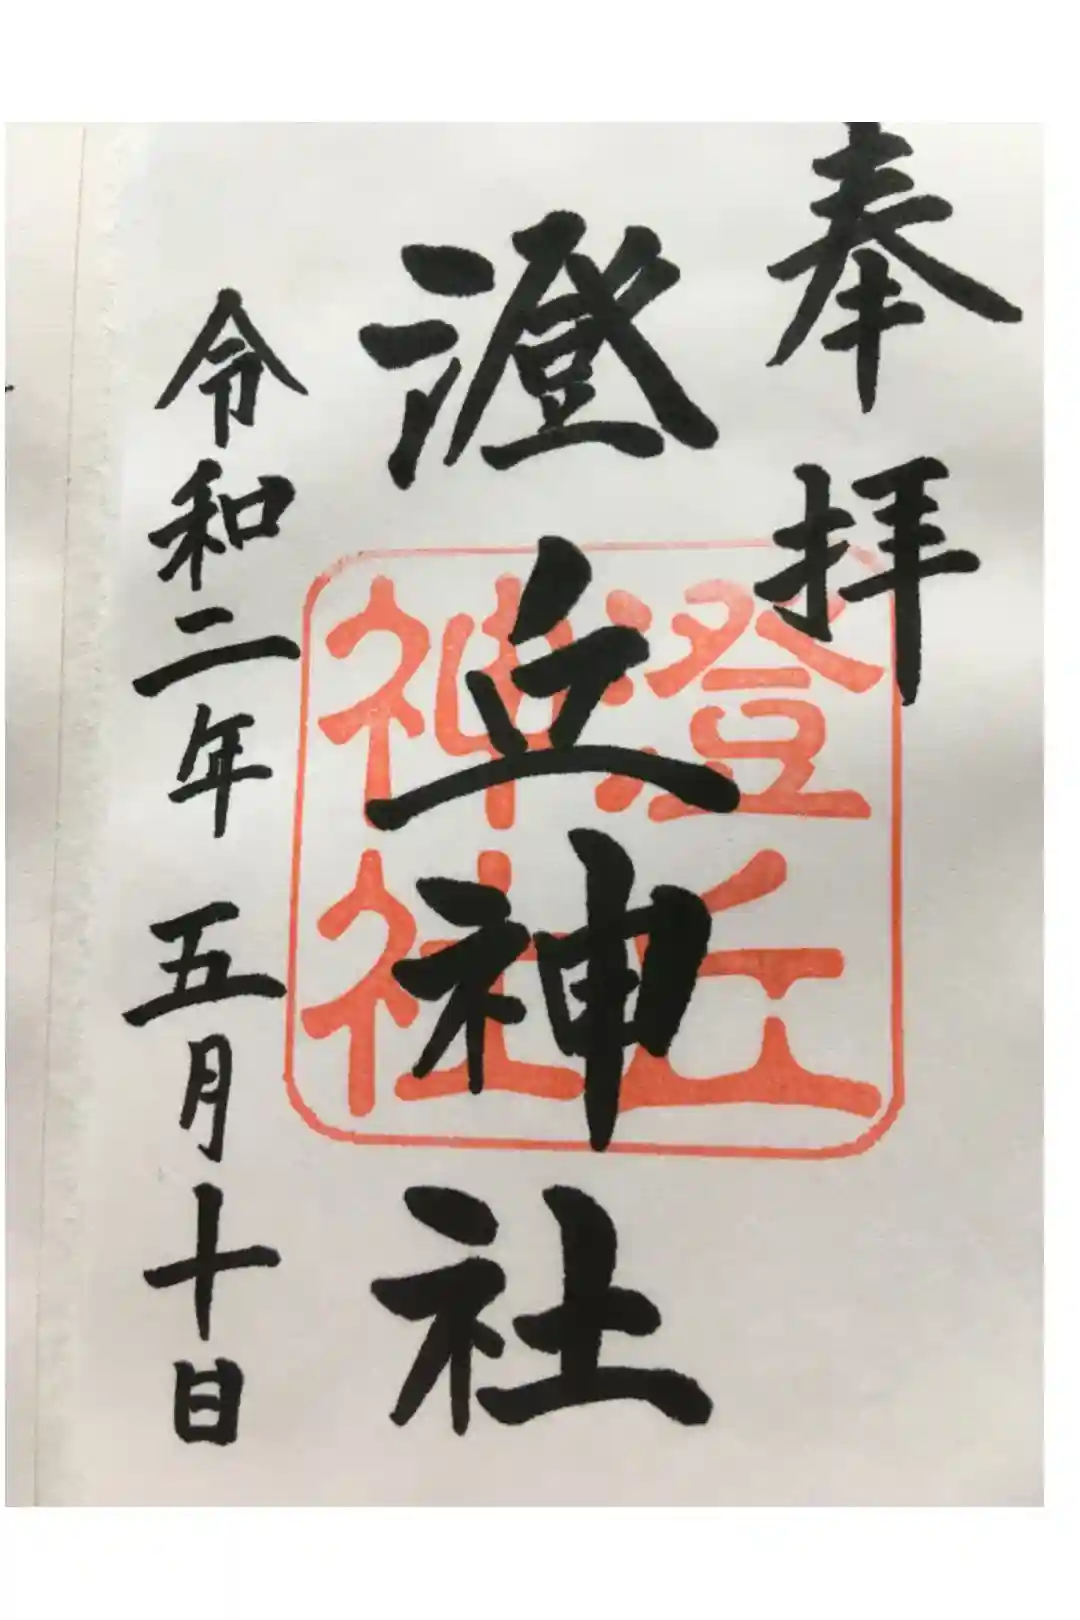 奉拝
澄丘神社
令和二年五月十日
澄丘
神社